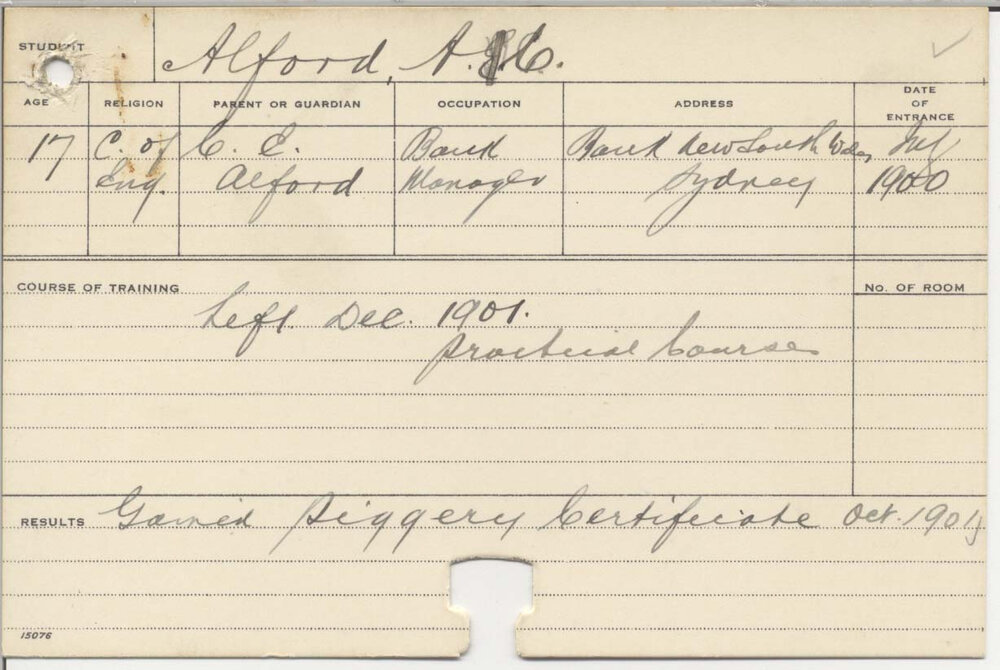 STUDENT Alford, A. C.
AGE RELIGION PARENT OR GUARDIAN OCCUPATION ADDRESS DATE OF ENTRANCE
17 C. of C. E. Bank Bank New South Wales
Eng. Alford Manager Sydney 1900
COURSE OF TRAINING No. OF ROOM
Left Dec. 1901.
Practical Course
RESULTS Gained Piggery Certificate Oct. 1901
15076